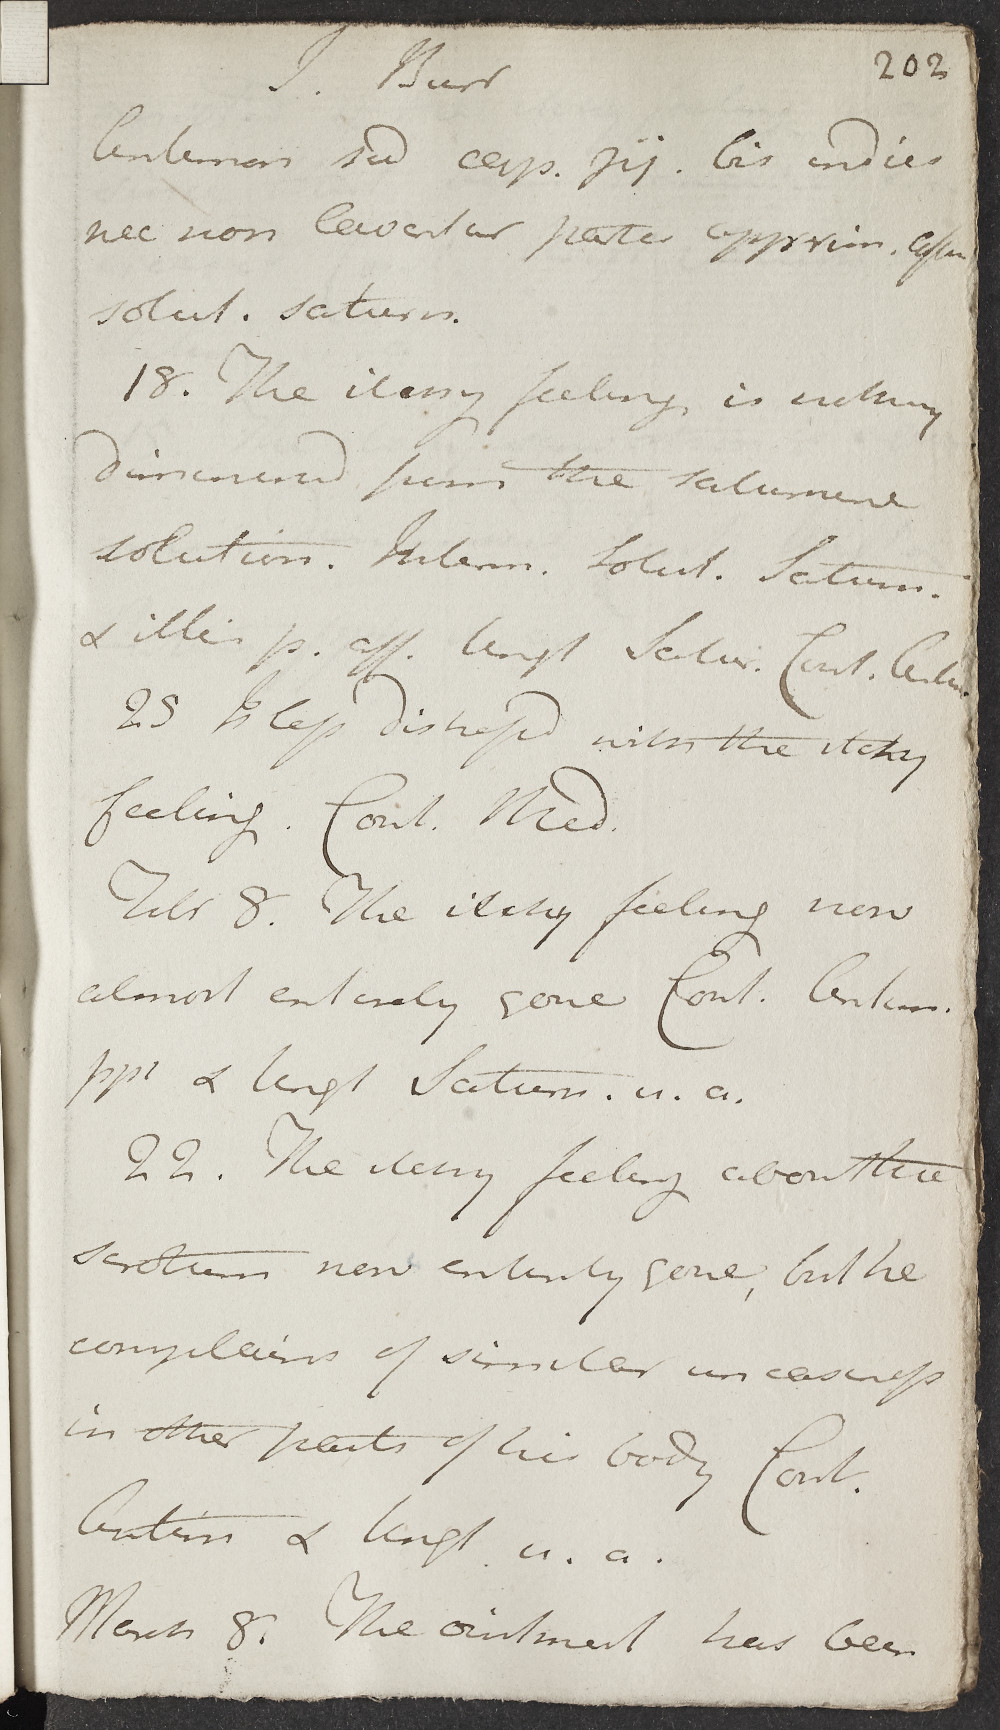 J. Burr 202
Antimon sud cap. ʒij. bis indies
nec non lavantur partes
solut. saturn.
18. The itchy feeling is nothing
diminished from the saturnine
solution. Interm. Solut. Saturn.
& illis p. aff. Ungt Satur. Cont. Antim.
25 Is less distressed with the itchy
feeling. Cont. Med.
Febr 8. The itchy feeling now
almost entirely gone Cont. Antim.
ppt & Ungt Saturn. u. a.
22. The itchy feeling about the
scrotum now entirely gone, but he
complains of similar uneasiness
in other parts of his body Cont.
Antim & Ungt u. a.
March 8. The ointment has been